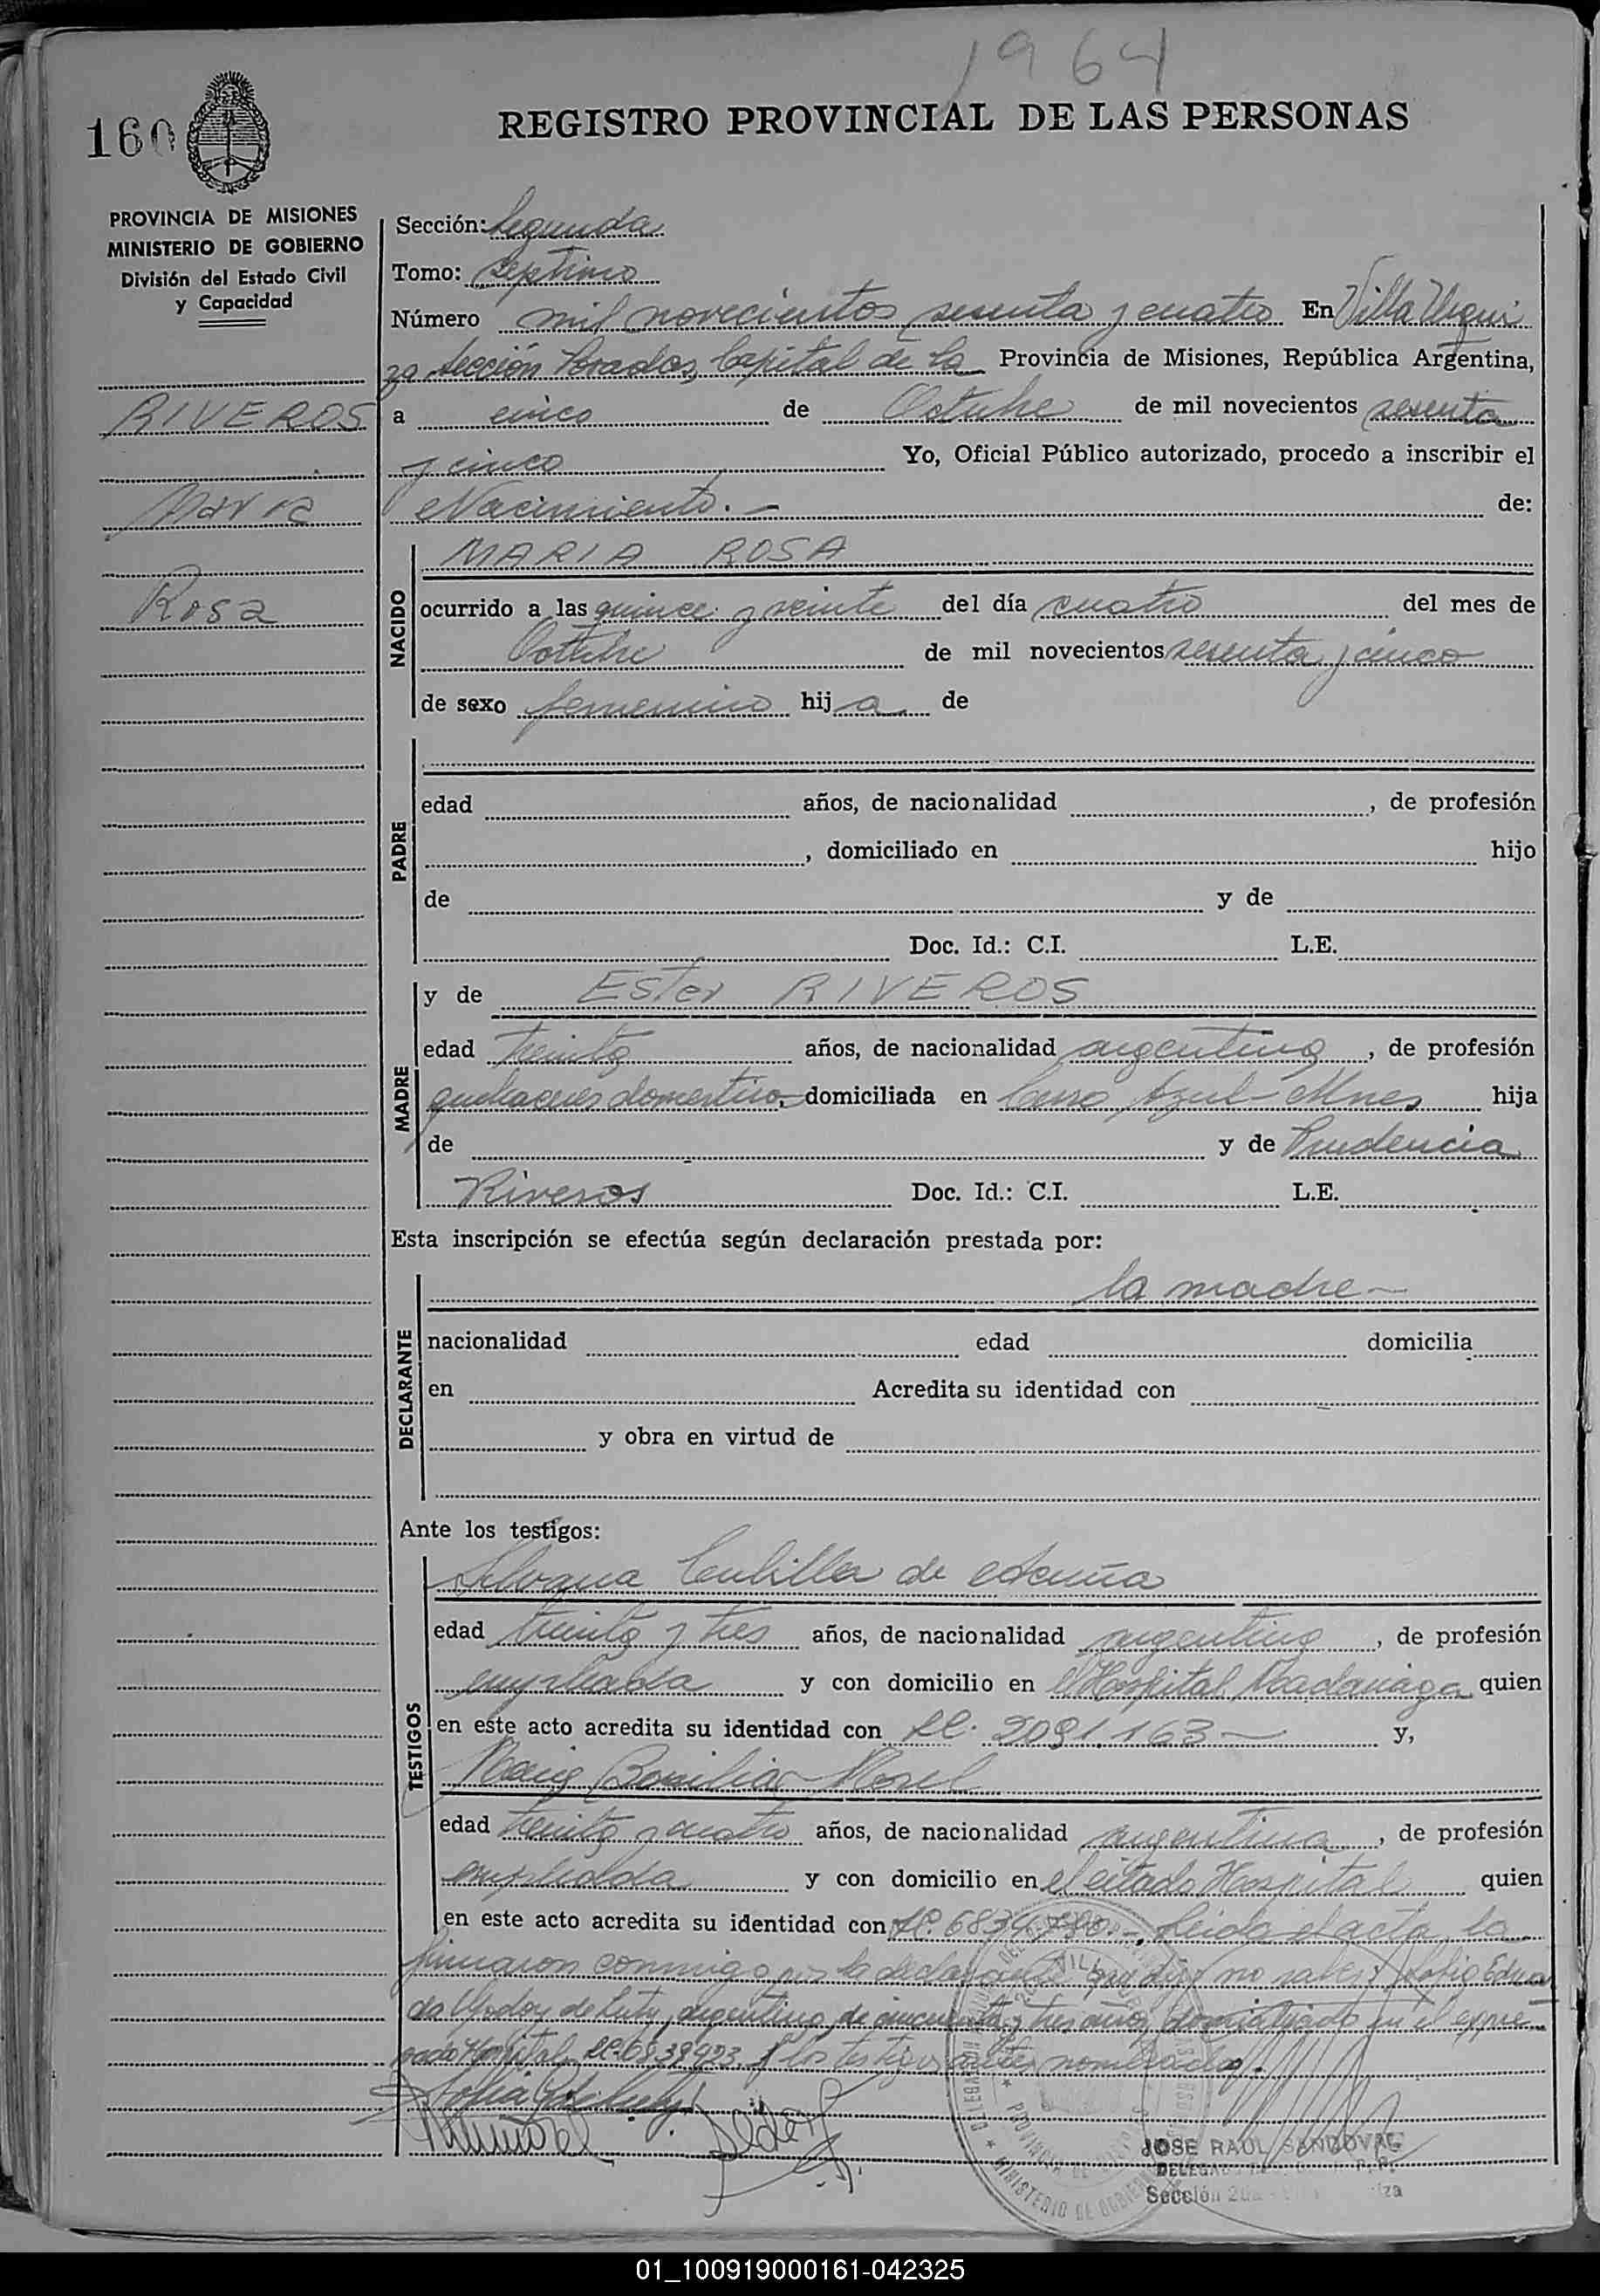 1964
160
REGISTRO PROVINCIAL DE LAS PERSONAS
PROVINCIA DE MISIONES
MINISTERIO DE GOBIERNO
División del Estado Civil
y Capacidad
RIVEROS
Maria
Rosa
Sección: Segunda
Tomo: septimo
Número mil novecientos sesenta y cuatro En Villa Urqui
za Sección Posadas, Capital de la Provincia de Misiones, República Argentina,
a cinco de Octubre de mil novecientos sesenta
y cinco Yo, Oficial Público autorizado, procedo a inscribir el
Nacimiento.- de:
NACIDO
MARIA ROSA
ocurrido a las quince y veinte del día cuatro del mes de
Octubre de mil novecientos sesenta y cinco
de sexo femenino hij a de
PADRE
edad años, de nacionalidad , de profesión
, domiciliado en hijo
de y de
Doc. Id.: C.I. L.E.
MADRE
y de Ester RIVEROS
edad treinta años, de nacionalidad argentina, de profesión
quehaceres domesticos, domiciliada en Cerro Azul - Mnes hija
de y de Prudencia
Riveros Doc. Id.: C.I. L.E.
Esta inscripción se efectúa según declaración prestada por:
DECLARANTE
la madre -
nacionalidad edad domicilia
en Acredita su identidad con
y obra en virtud de
Ante los testigos:
TESTIGOS
Silvana de Acuña
edad treinta y tres años, de nacionalidad argentina, de profesión
empleada y con domicilio en el Hospital Madariaga quien
en este acto acredita su identidad con LC. 163 - y,
Morel
edad treinta y cuatro años, de nacionalidad argentina, de profesión
empleada y con domicilio en el citado Hospital quien
en este acto acredita su identidad con LC. Leida el acta, la
firmaron conmigo por la declarante que dijo no saber: Sofia Edua
da Godoy de argentina, de cincuenta y tres años, domiciliada en el expre
sado Hospital y los testigos antes nombrados.
JOSE RAUL SANDOVAL
Sección 2da
PROVINCIA DE
MINISTERIO DE GOBIERNO
01_100919000161-042325